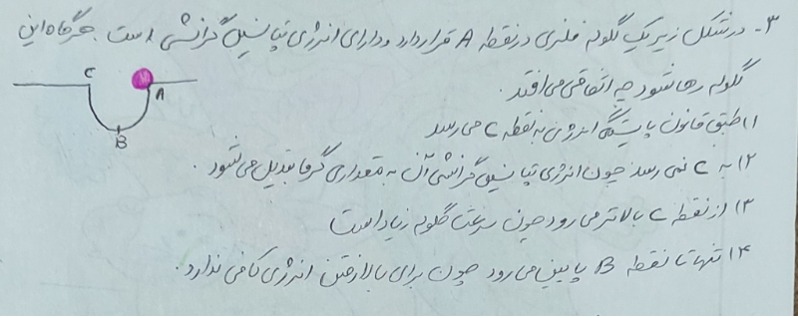 ۳- در شکل زیر یک گلوله فلزی در نقطه A قرار دارد و دارای انرژی پتانسیل گرانشی است. هرگاه این
گلوله رها شود چه اتفاقی می افتد.
C
A
B
۱) طبق قانون پایستگی انرژی به نقطه C می رسد
۲) به C نمی رسد چون انرژی پتانسیل گرانشی آن به مقداری گرما تبدیل می شود.
۳) از نقطه C بالاتر می رود چون سرعت گلوله زیاد است
۴) تنها تا نقطه B پایین می رود چون برای بالا رفتن انرژی کافی ندارد.